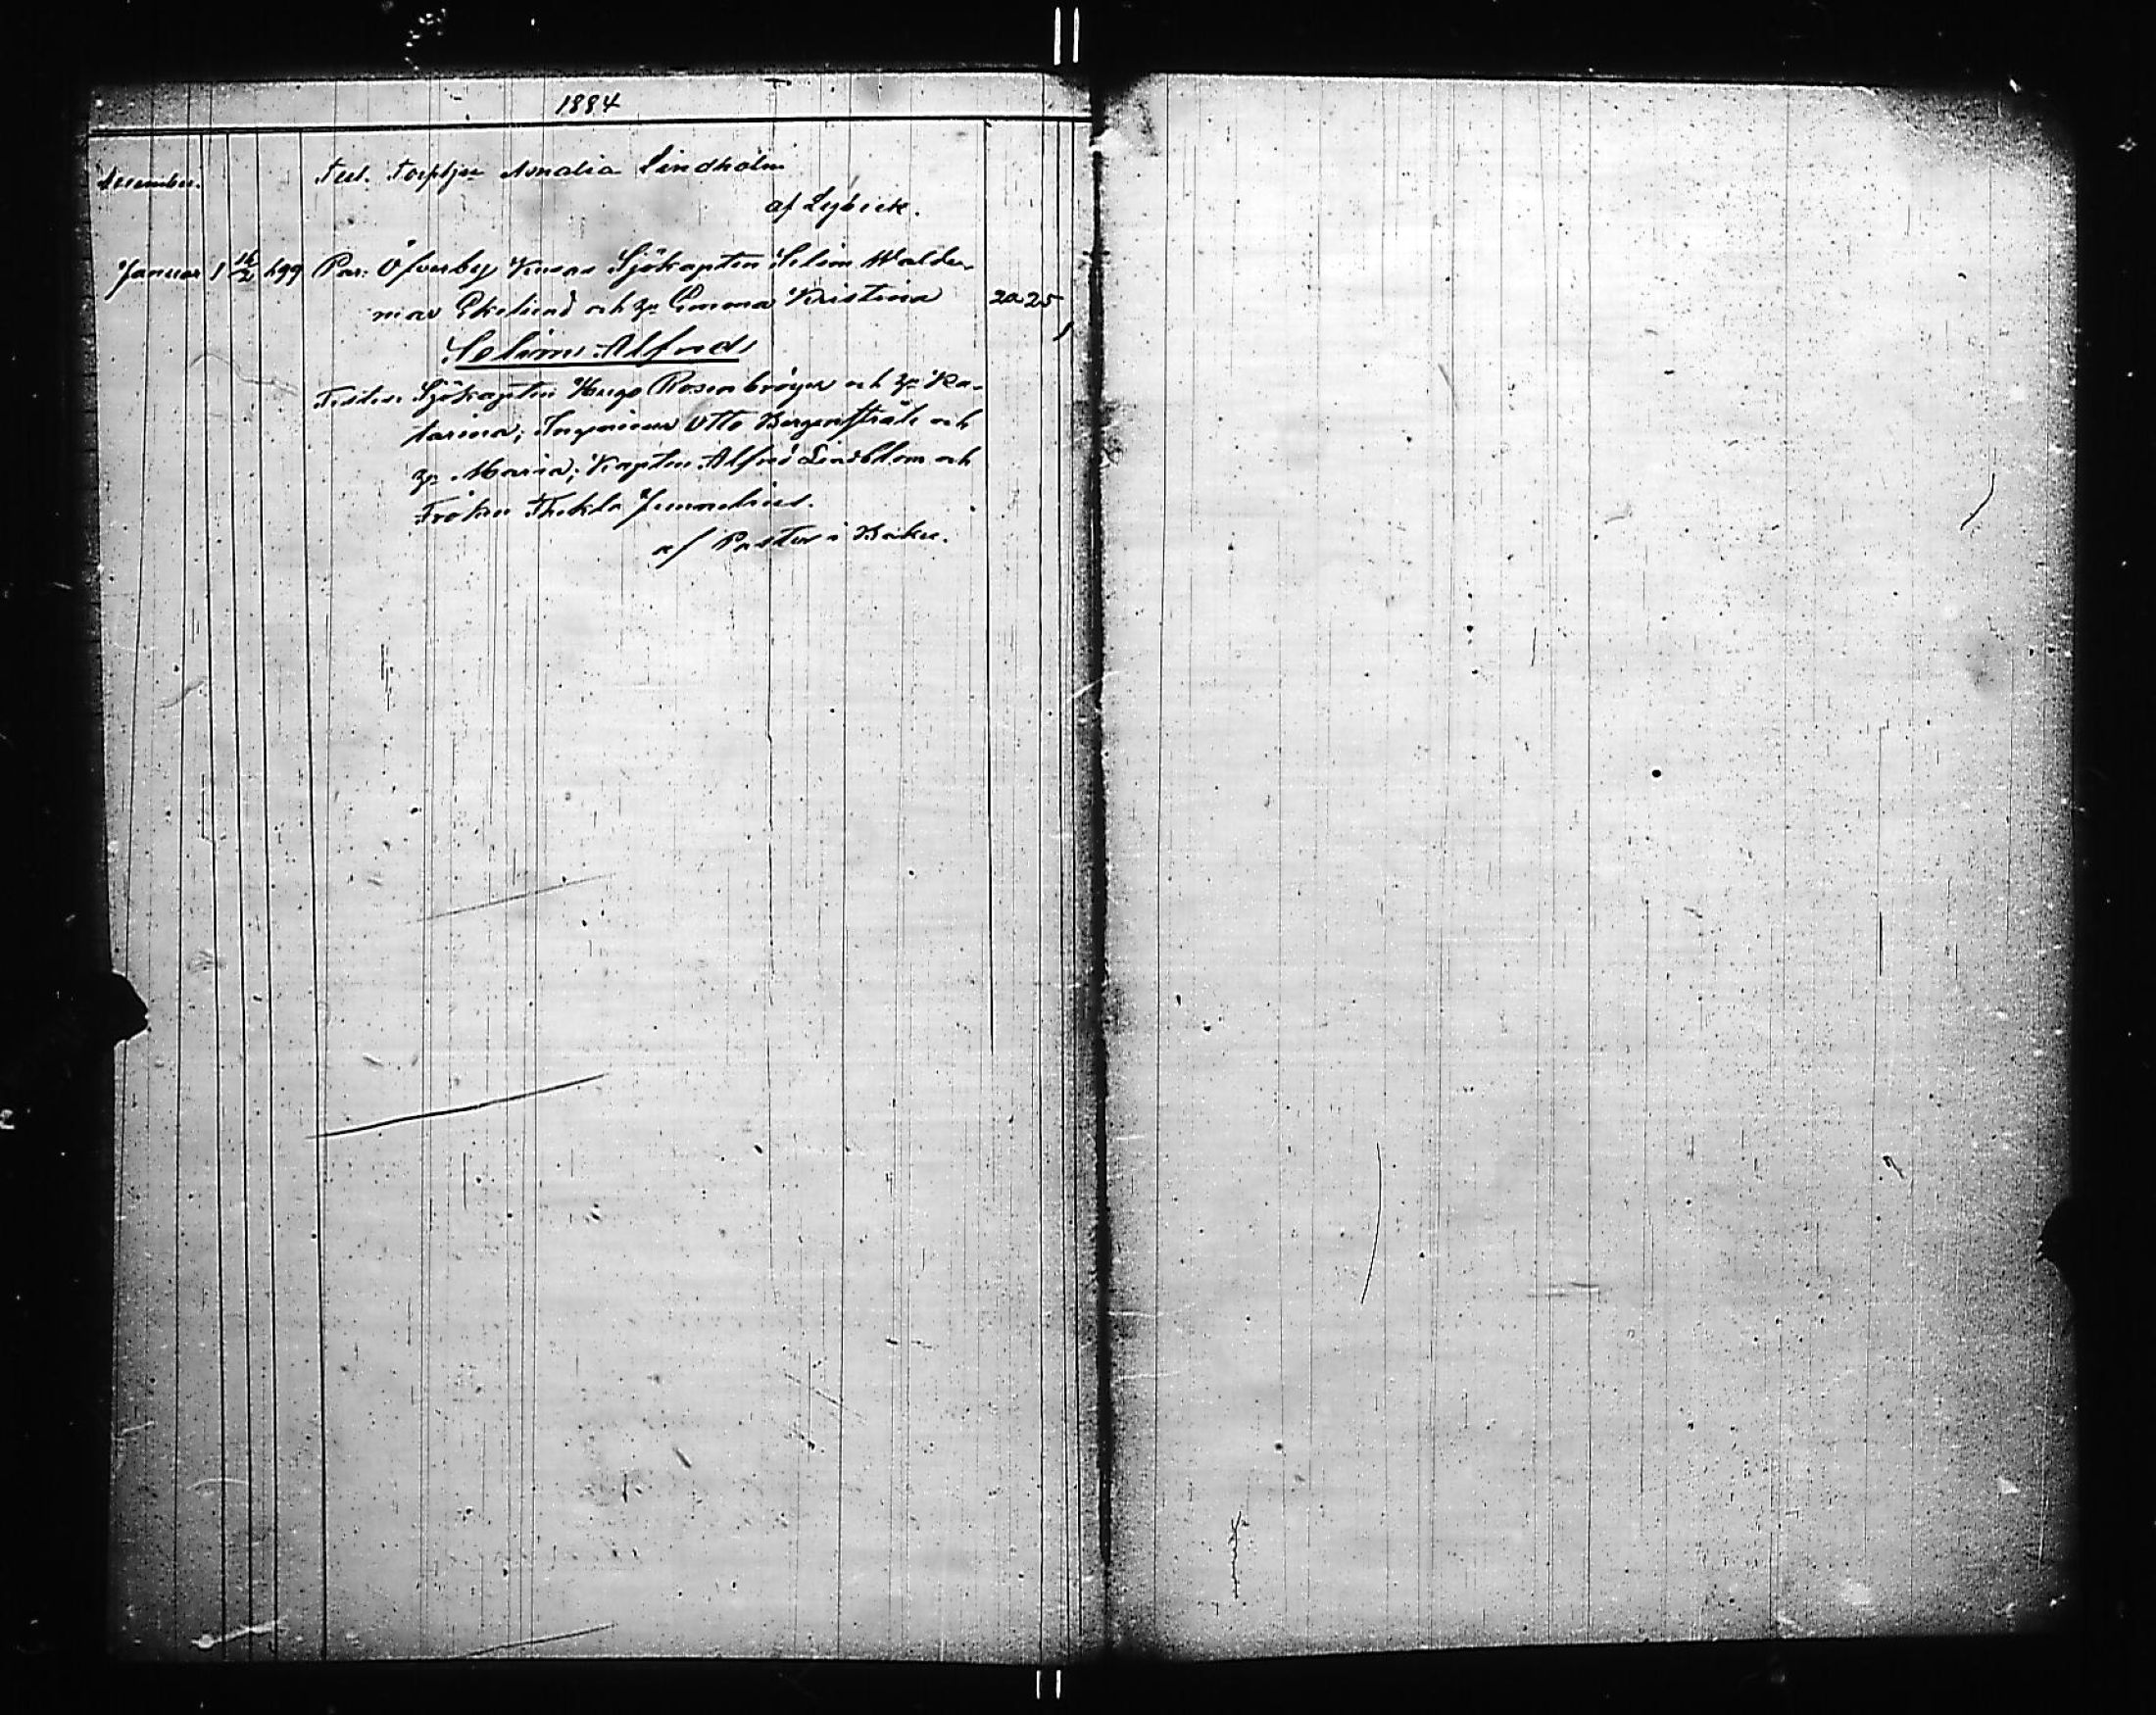 1884
December. Test. Torpflju Amalia Lindholm
af Lybeck.
Januar 1 16/2 499 Par: Öfverby Kusas Sjökapten Selim Walde-
mar Ekelund och h. Emma Kristina 20-25
Selim Alfred 1
Testes: Sjökapten Hugo Rosenbröijer och h. Ka-
tarina; Ingeniour Otto Bergenstråle och
h. Maria; Kapten Alfred Lindblom och
Fröken Thekla Junnelius.
af Pastor i Baku.